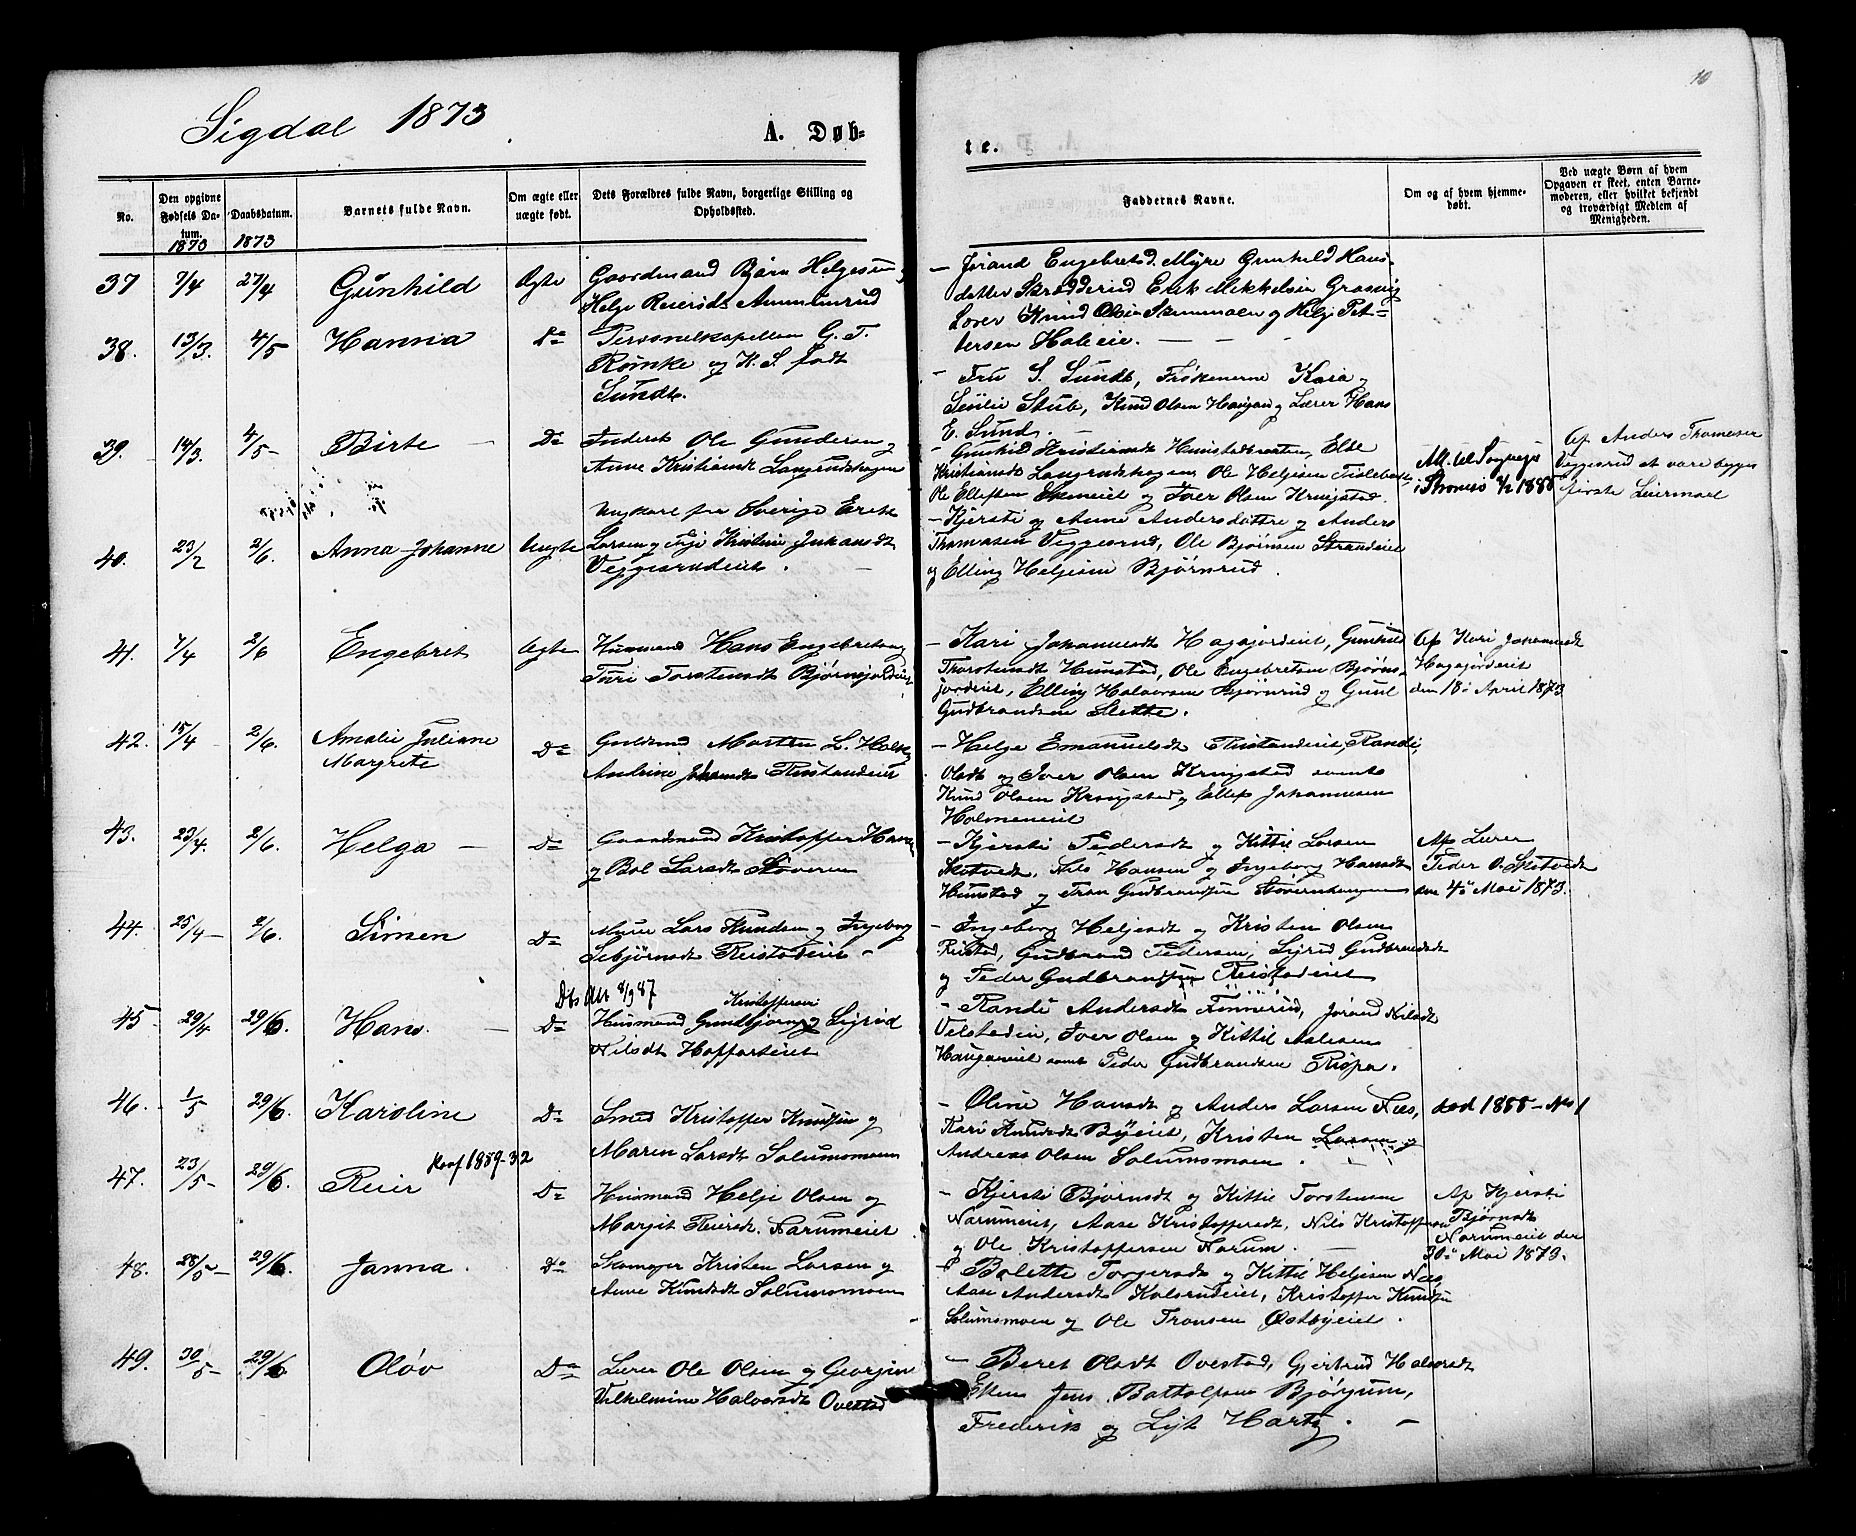 10
Sigdal 1873
A. Døb-
te.
No.
Den opgivne Fødsels Datum.
1873
Daabsdatum.
1873
Barnets fulde Navn.
Om ægte eller uægte født.
Dets Forældres fulde Navn, borgerlige Stilling og Opholdssted.
Faddernes Navne.
Om og af hvem hjemmedøbt.
Ved uægte Børn af hvem Opgaven er skeet, enten Barnemoderen, eller hvilket bekjendt og troværdigt Medlem af Menigheden.
37 7/4 27/4 Gunhild Ægte
Gaardmand Bjørn Helgesen
Helge Reiersdt
Jørand Engebretsd. Myre Gunhild Hans-
datter Skredderud Erik Mikkelsen
Knud Olsen og Helg Pet-
tersen
38. 13/3. 4/5 Hanna Do
Personelkapellan G. F.
Rømke og H. S. født
Sundt.
Fru S. Sundt, Frøkenerne Kaia og
Stub, Knud Olsen Haugan og Lærer Hans
E. Sund.
39. 14/3. 4/5 Birte Do
Inderst Ole Gundersen og
Anne Kristiansdt Langrudshagen
Gunhild Kristiansdt
Kristiansdt Langrudshagen, Ole Helgesen
Ole Elleftsen og Iver Olsen Kringstad.
40. 23/2 2/6. Anna Johanne Uægte
Ungkarl fra Sverige Erik
Larsen og Pige Kristine Johansdt
Veggesrudeiet.
Kjersti og Anne Andersdøttre og Anders
Thomasen Veggesrud, Ole Bjørnsen Strandeiet
og Elling Helgesen Bjørnrud.
Af Anders Thomesen
Veggesrud at være begges
første Leiermaal
41. 7/4 2/6 Engebret Ægte
Husmand Hans Engebretsen og
Turi Torstensdt
Kari Johannesdt Hagajordeiet, Gunhild
Thorstensdt Hunstad, Ole Engebretsen
Elling Halvorsen Bjørnrud og
Gudbrandsen Slette.
Af Kari Johannesdt
Hagajordeiet
den 18. April 1873
42. 15/4 2/6. Amalie Juliane
Margrete Do
Guldsmed Morten L. Holst
Andrine Johannesdt
Helge Emanuelsdt Randi
Olsdt og Iver Olsen Kringstad samt
Knud Olsen Kringstad og Ellef Johannesen
Holmeneiet
43. 23/4. 2/6. Helga Do
Gaardmand Kristoffer Hans
og Bol Larsdt Støveren
Kjersti Pedersdt og Kittil Larsen
Skotvedt, Nils Hansen og Ingeborg Hansdt
Hunstad og Gudbrandsen Støvernhaugen
Af Lærer
Peder O. Skotvedt
den 4. Mai 1873.
44. 25/4 2/6. Simen Do
Murer Lars Knudsen og Ingeborg
Asbjørnsdt
Ingeborg Helgesdt og Kristen Olsen
Ristad, Gudbrand Pedersen, Sigrid Gudbrandsdt
og Peder Gudbrandsen
45 29/4 29/6. Hans. Do
Husmand Gundbjørn Kristoffersen og Sigrid
Nilsdt
Randi Andersdt Finnerud, Jørand Nilsdt
Velstadeie, Iver Olsen og Kittil
Haugareiet samt Peder Gudbrandsen
46. 1/5 29/6. Karoline Do
Smed Kristoffer Knudsen og
Maren Larsdt Solumsmoen
Oline Hansdt og Anders Larsen Næs,
Kari Knudsdt Byeiet, Kristen Larsen og
Andreas Olsen Solumsmoen.
død 1888 - No 1
47. 23/5 29/6. Reier Konf 1889-32 Do
Husmand Helge Olsen og
Margit Reiersdt. Narumeiet
Kjersti Bjørnsdt og Kittil Torstensen
Narumeiet, Aase Kristoffersdt, Nils Kristoffersen
og Ole Kristoffersen Narum.
Af Kjersti
Bjørnsdt
Narumeiet den
30. Mai 1873.
48. 28/5 29/6. Janna. Do
Skomager Kristen Larsen og
Anne Knudsdt Solumsmoen
Bolette Torgersdt og Kittil Helgesen Næs
Aase Andersdt Kolsrudeiet, Kristoffer Knudsen
Solumsmoen og Ole Fransen Østbyeiet.
49. 30/5 29/6 Oløv Do
Lærer Ole Olsen og Georgine
Vilhelmine Halvorsdt Ovestad
Beret Olsdt Ovestad, Gjertrud Halvorsdt
Jens Battolfsen Bjørgum,
Frederik og Hartz.